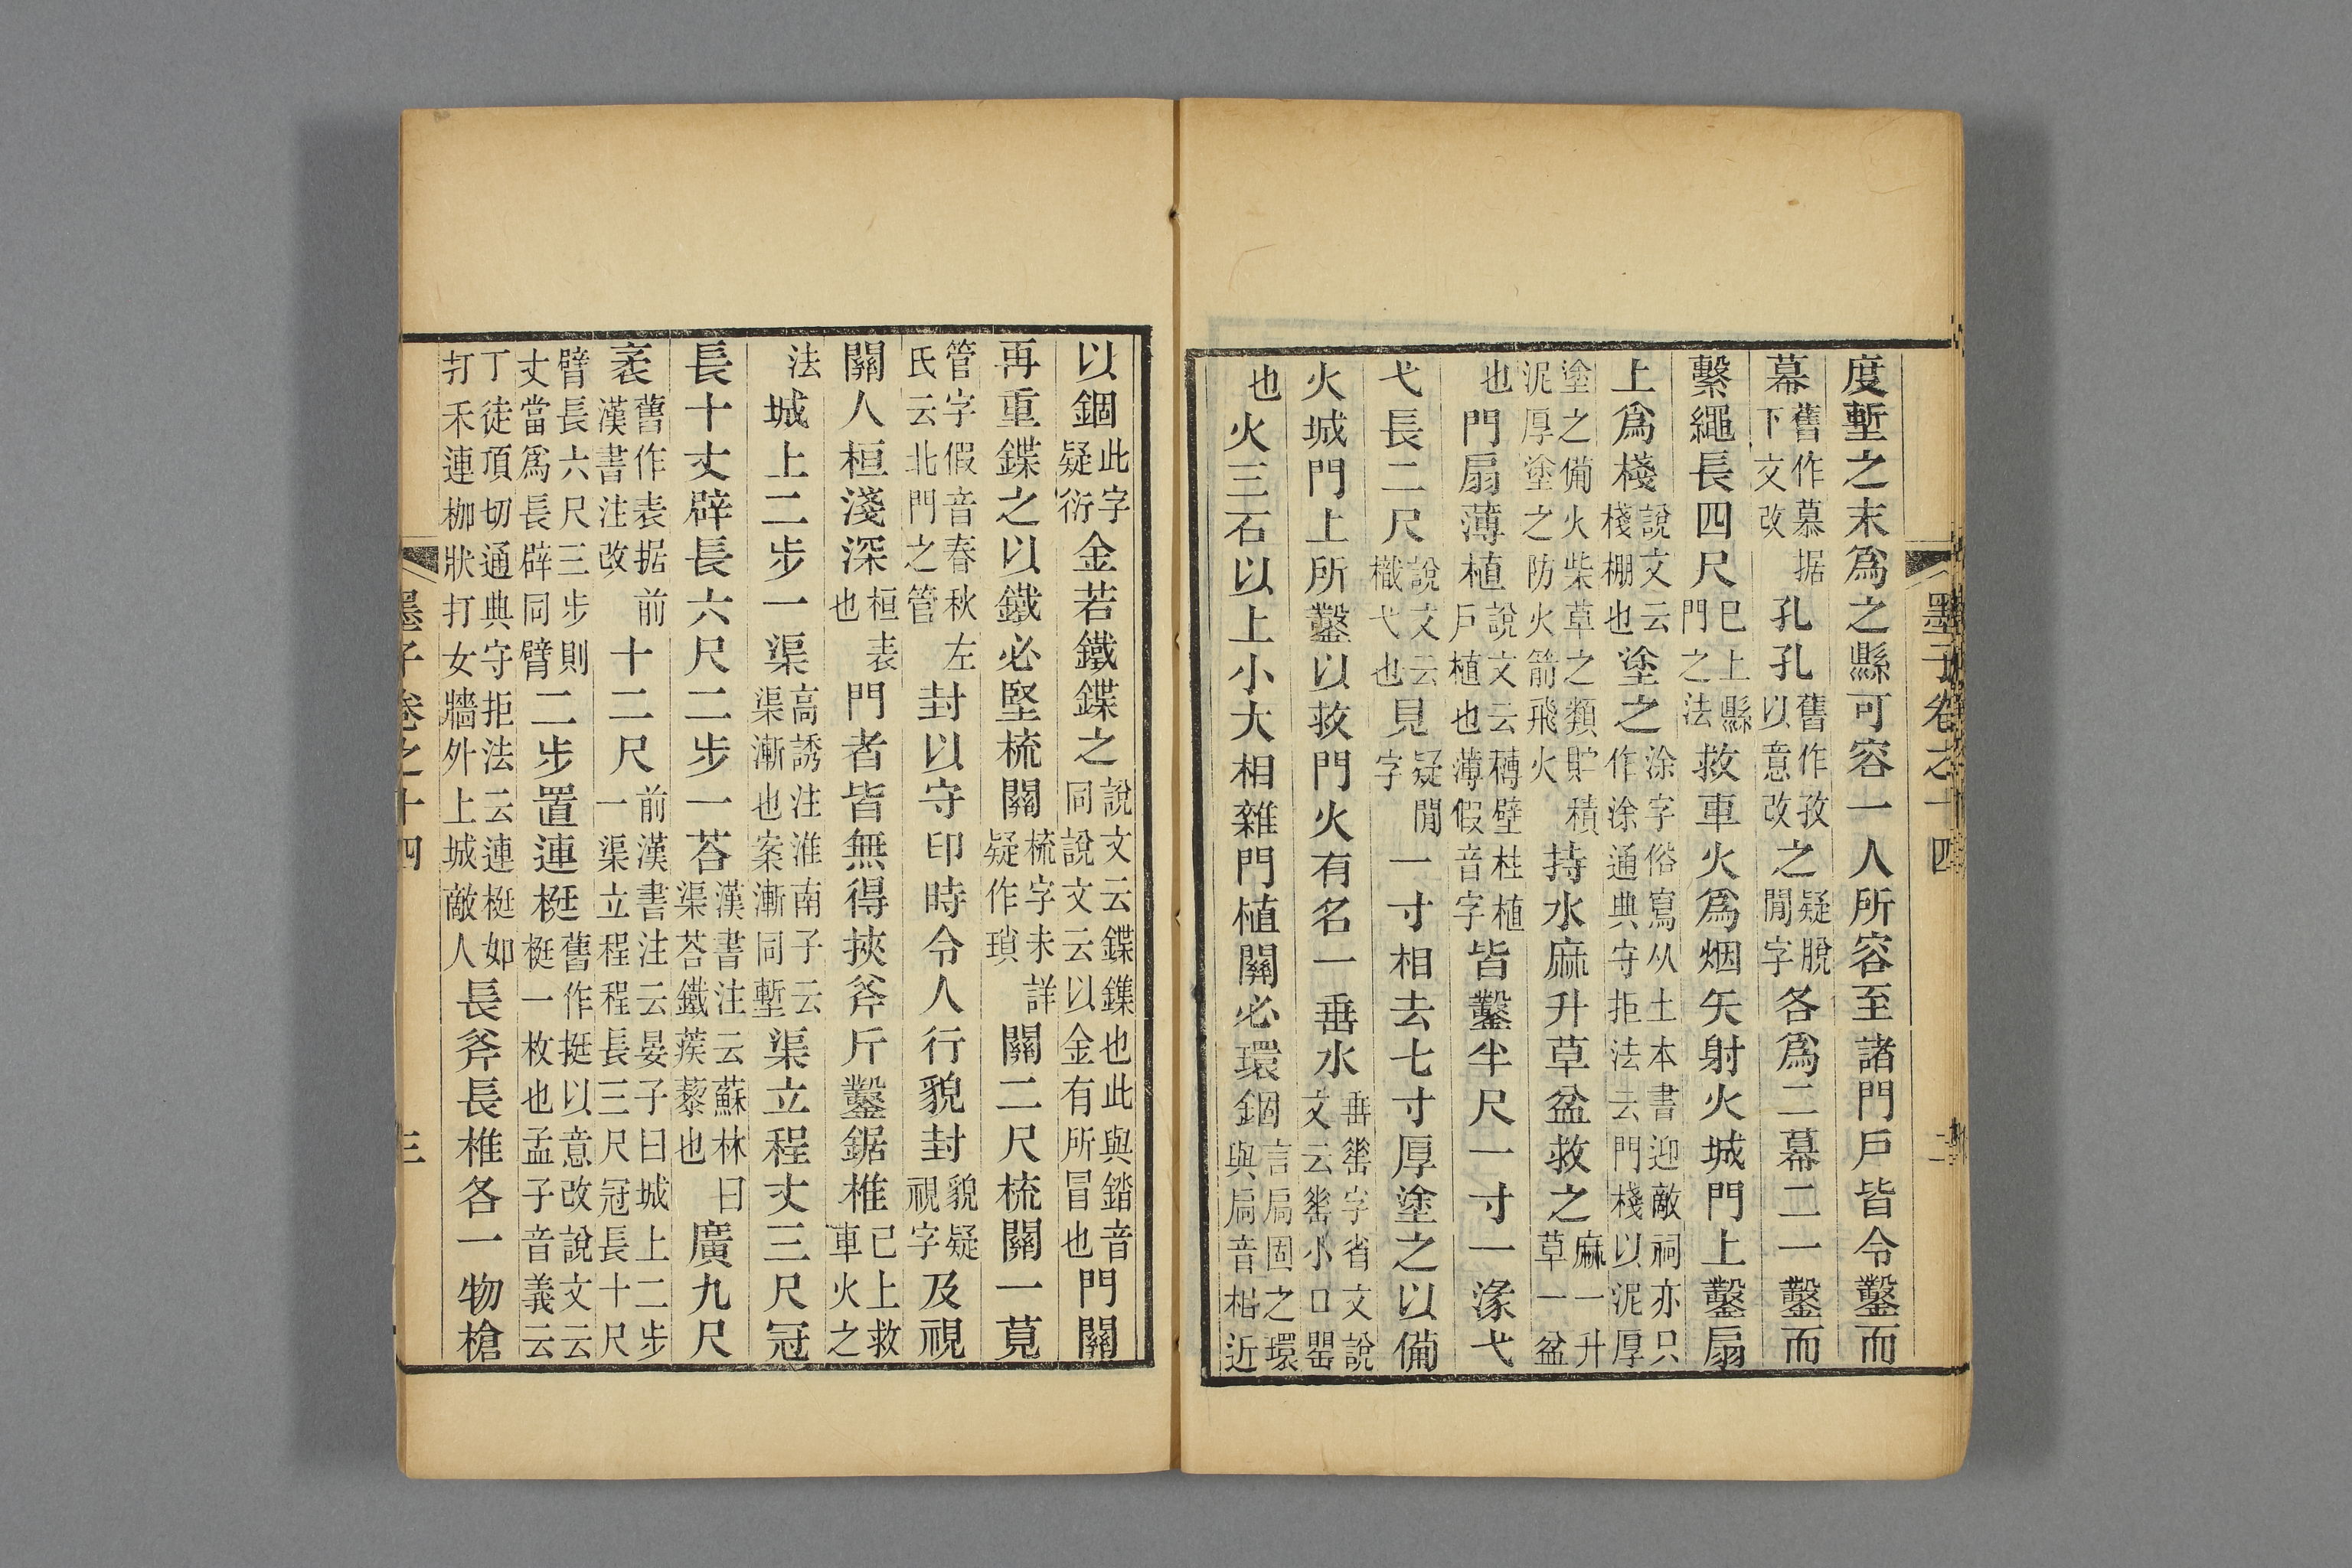 墨子卷之十四
二
度塹之末爲之縣可容一人所容至諸門戶皆令鑿而
幕舊作慕据下文改孔孔舊作孜以意改之疑脫閒字各爲二幕二一鑿而
繫繩長四尺巳上縣門之法救車火爲烟矢射火城門上鑿扇
上爲棧說文云棧棚也塗之涂字俗寫从土本書迎敵祠亦只作涂通典守拒法去門棧以泥厚
塗之備火柴草之類貯積泥厚塗之防火箭飛火持水麻升草盆救之麻一升草一盆
也門扇薄植說文云欂壁柱植戶植也薄假音字皆鑿半尺一寸一涿弋
弋長二尺說文云樴弋也見疑閒字一寸相去七寸厚塗之以備
火城門上所鑿以救門火有名一垂水垂𦉥字省文說文云𦉥小口罌
也火三石以上小大相雜門植關必環錮言扃固之環與扃音相近
以錮此字疑衍金若鐵鍱之說文云鍱鏶也此與錔音同說文云以金有所冒也門關
再重鍱之以鐵必堅梳關梳字未詳疑作瑣關二尺梳關一莧
管字假音春秋左氏云北門之管封以守印時令人行貌封貌疑視字及視
關人桓淺深桓表也門者皆無得挾斧斤鑿鋸椎已上救車火之
法城上二步一渠高誘注淮南子云渠漸也案漸同塹渠立程丈三尺冠
長十丈辟長六尺二步一荅漢書注云蘇林曰渠荅鐵蒺藜也廣九尺
袤舊作表据前漢書注改十二尺前漢書注云晏子曰城上二步一渠立程程長三尺冠長十尺
臂長六尺三步則丈當爲長辟同臂二步置連梃舊作挺以意改說文云梃一枚也孟子音義云
丁徒頂切通典守拒法云連梃如打禾連枷狀打女牆外上城敵人長斧長椎各一物槍
墨子卷之十四
三